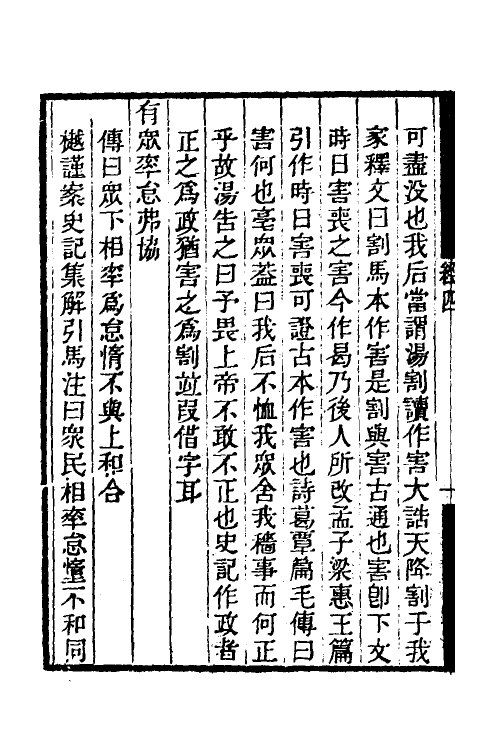 可盡没也我后當謂湯割讀作害大誥天降割于我
家釋文曰割馬本作害是割與害古通也害卽下文
時日害喪之害今作曷乃後人所改孟子梁惠王篇
引作時日害喪可證古本作害也詩葛覃篇毛傳曰
害何也亳眾葢曰我后不恤我眾舍我穡事而何正
乎故湯告之曰予畏上帝不敢不正也史記作政者
正之爲政猶害之爲割並叚借字耳
有眾率怠弗協
傳曰眾下相率爲怠惰不與上和合
樾謹案史記集解引馬注曰眾民相率怠惰不和同
經四
十